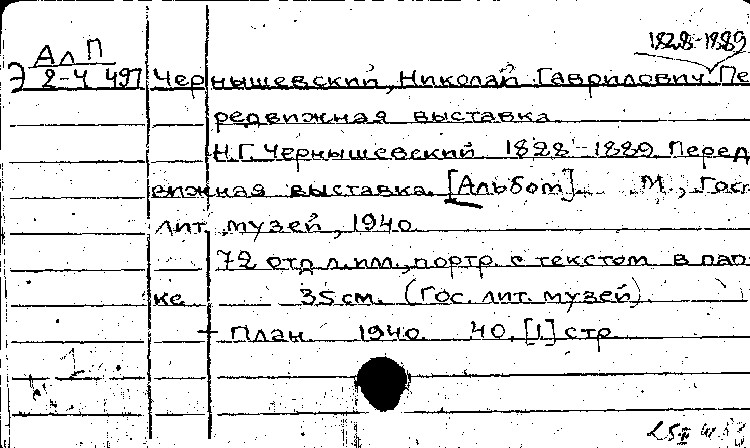 1828-1889
АлП
Э 2-4 497 Чернышевский, Николай Гаврилович. Пе
редвижная выставка.
Н.Г. Чернышевский 1828-1889. Перед
вижная выставка. [Альбом]. М., Гос.
лит. музей, 1940.
72 отд. л. илл., портр. с текстом в пап
ке 35 см. (Гос. лит. музей).
+ План. 1940. 40, [1] стр.